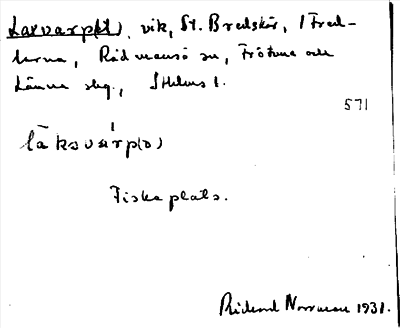 Laxvarp(et), vik, St. Bredskär, i Fred-
larna, Rådmansö sn, Frötuna och
Länna skg., Sthlms l.
571
läksvárp(ə)
Fiskeplats.
Rickard Norrman 1931.